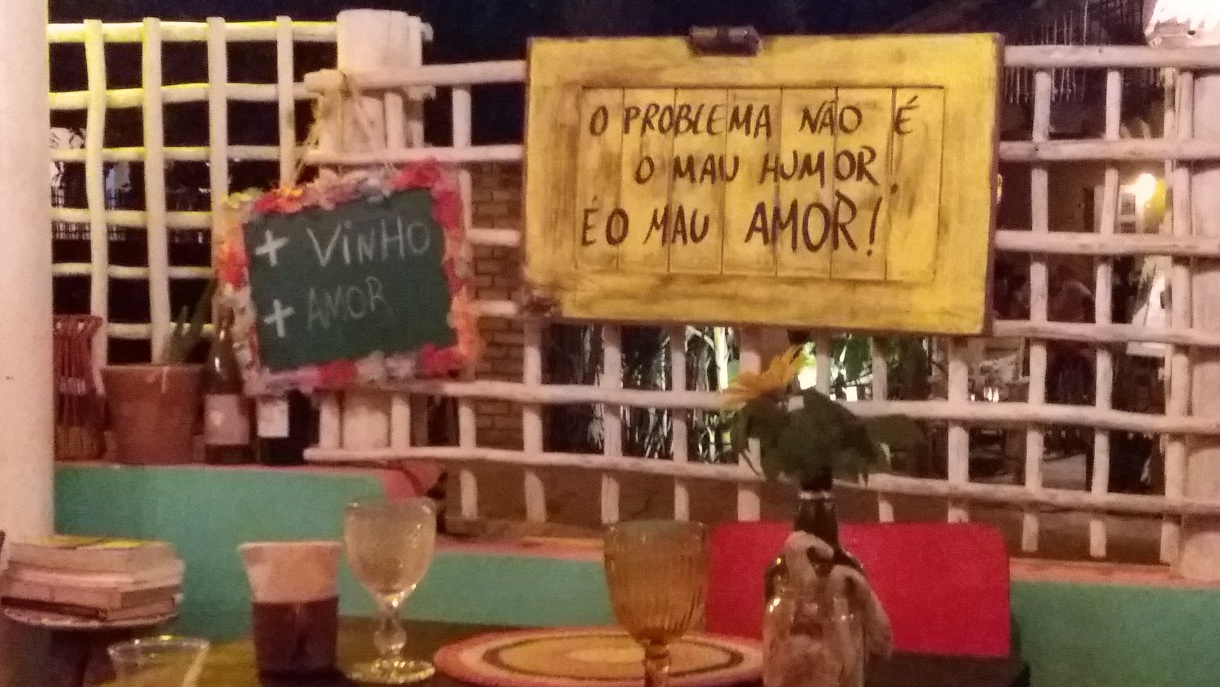 O PROBLEMA NÃO É
O MAU HUMOR,
É O MAU AMOR!
+ VINHO
+ AMOR